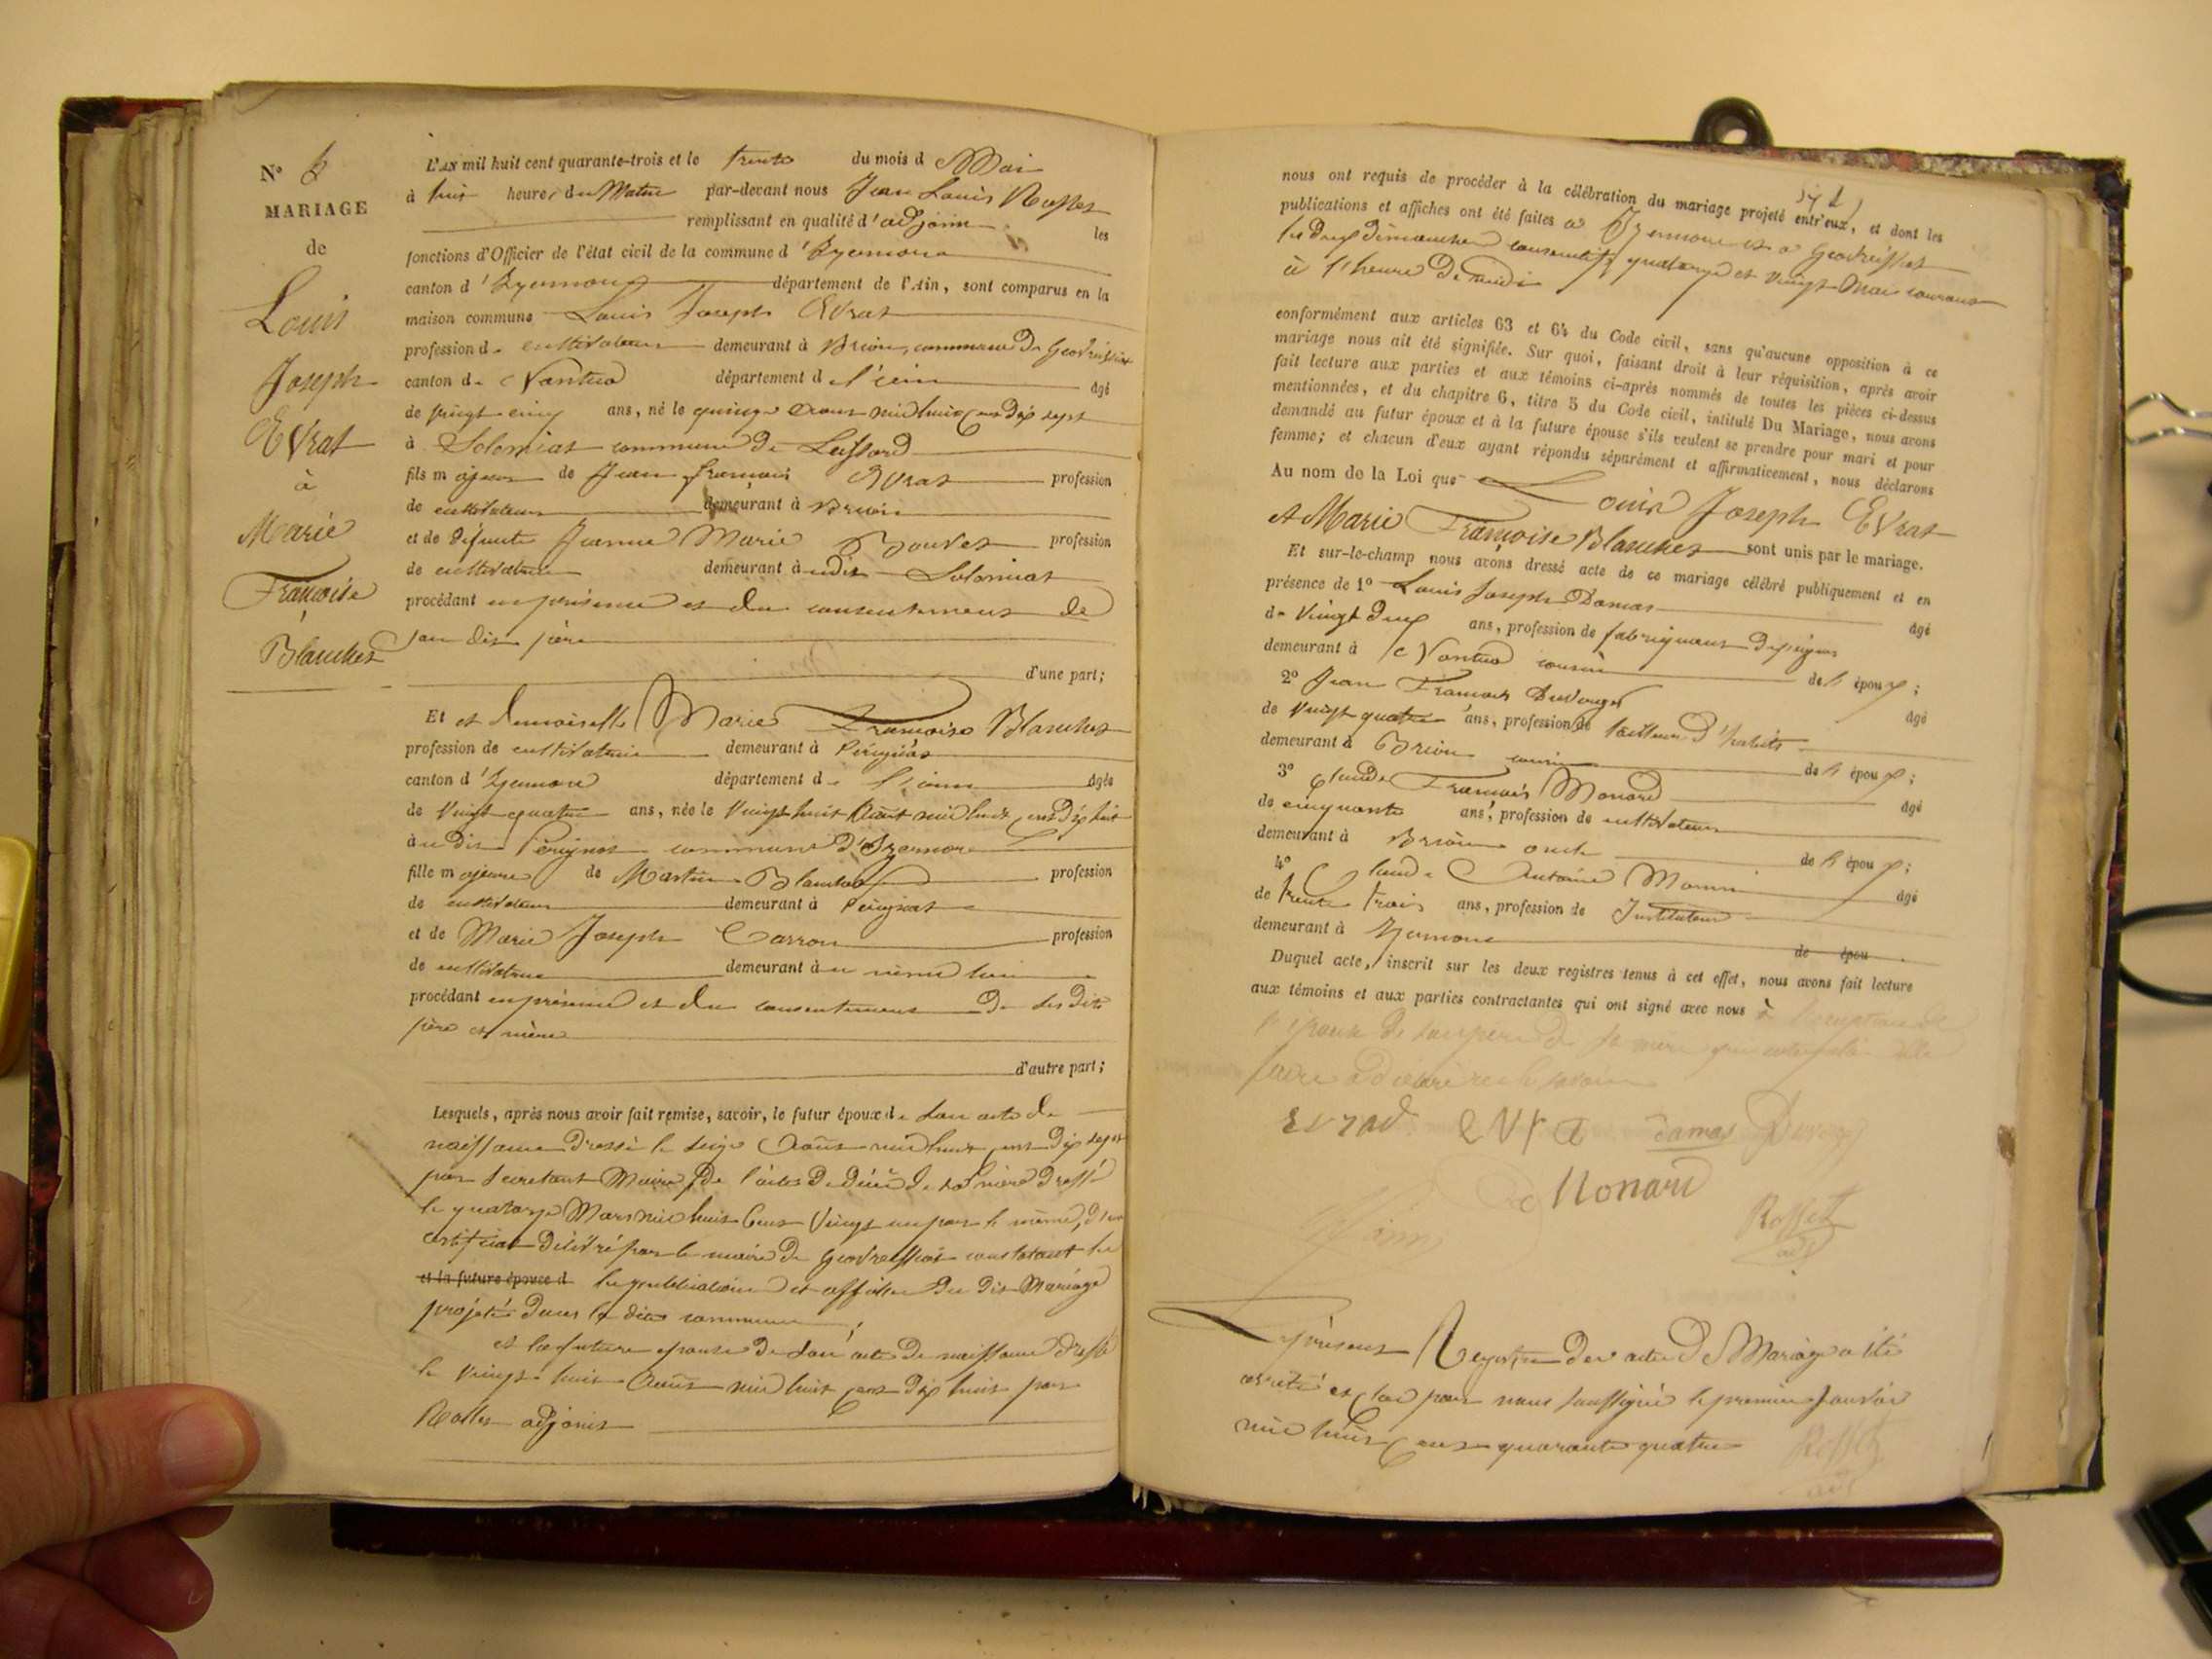 N° 6
MARIAGE
de
Louis
Joseph
Evrat
à
Marie
Françoise
Blanchet
L'an mil huit cent quarante-trois et le trente du mois d Mai
à huit heures du Matin par-devant nous Jean Louis Rosset
remplissant en qualité d'adjoint les
fonctions d'Officier de l'état civil de la commune d'Izernore
canton d'Izernore département de l'Ain, sont comparus en la
maison commune Louis Joseph Evrat
profession de cultivateur demeurant à Brion, commune de Geovreissiat
canton de Nantua département d l'ain âgé
de vingt cinq ans, né le quinze Aout mil huit cent dix sept
à Solomiat commune de Leyssard
fils majeur de Jean françois Evrat profession
de cultivateur demeurant à Brion
et de défunte Jeanne Marie Bouvet profession
de cultivatrice demeurant à udit Solomiat
procédant en présence et du consentement de
son dit père
d'une part;
Et et demoiselle Marie Françoise Blanchet
profession de cultivatrice demeurant à Pérignat
canton d'Izernore département d l'ain âgée
de vingt quatre ans, née le vingt huit Août mil huit cent dix huit
à u dit Pérignat commune d'Izernore
fille majeure de Martin Blanchet profession
de cultivateur demeurant à Pérignat
et de Marie Joseph Carron profession
de cultivatrice demeurant à u même lieu
procédant en présence et du consentement de ses dits
père et mère
d'autre part;
Lesquels, après nous avoir fait remise, savoir, le futur époux de son acte de
naissance dressé le seize Août mil huit cent dix sept
par Secretant Maire, de l'acte de décès de sa mère dressé
le quatorze Mars mil huit Cent Vingt un par le même, d'un
certificat délivré par le maire de Geovreissiat constatant les
et la future épouse d les publications et affiches du dit Mariage
projeté dans la dite commune,
et la future epouse de son acte de naissance dressé
le Vingt huit Août mil huit cent dix huit par
adjoint
nous ont requis de procéder à la célébration du mariage projeté entr'eux, et dont les
publications et affiches ont été faites à Izernore et à Geovreissiat
les deux dimanches consecutifs quatorze et vingt Mai courant
à l'heure de midi
conformément aux articles 63 et 64 du Code civil, sans qu'aucune opposition à ce
mariage nous ait été signifiée. Sur quoi, faisant droit à leur réquisition, après avoir
fait lecture aux parties et aux témoins ci-après nommés de toutes les pièces ci-dessus
mentionnées, et du chapitre 6, titre 5 du Code civil, intitulé Du Mariage, nous avons
demandé au futur époux et à la future épouse s'ils veulent se prendre pour mari et pour
femme; et chacun d'eux ayant répondu séparément et affirmativement, nous déclarons
Au nom de la Loi que Louis Joseph Evrat
et Marie Françoise Blanchet sont unis par le mariage.
Et sur-le-champ nous avons dressé acte de ce mariage célébré publiquement et en
présence de 1° Louis Joseph Damas âgé
de Vingt deux ans, profession de fabriquant de peignes
demeurant à Nantua cousin de l' époux;
2° Jean François âgé
de vingt quatre ans, profession de tailleur d'habits
demeurant à Brion cousin de l' époux;
3° Claude François Monard âgé
de cinquante ans, profession de cultivateur
demeurant à Brion oncle de l' époux;
4° Claude Antoine âgé
de trente trois ans, profession de Instituteur
demeurant à Izernore de épou
Duquel acte, inscrit sur les deux registres tenus à cet effet, nous avons fait lecture
aux témoins et aux parties contractantes qui ont signé avec nous à l'exception de
l'épouse de son père de sa mère qui
Evrat damas
Monard
Rosset
adj
Le présent Registre des actes de Mariage a été
arrêté et clos par nous soussigné le premier Janvier
mil huit cent quarante quatre
Rosset
adj